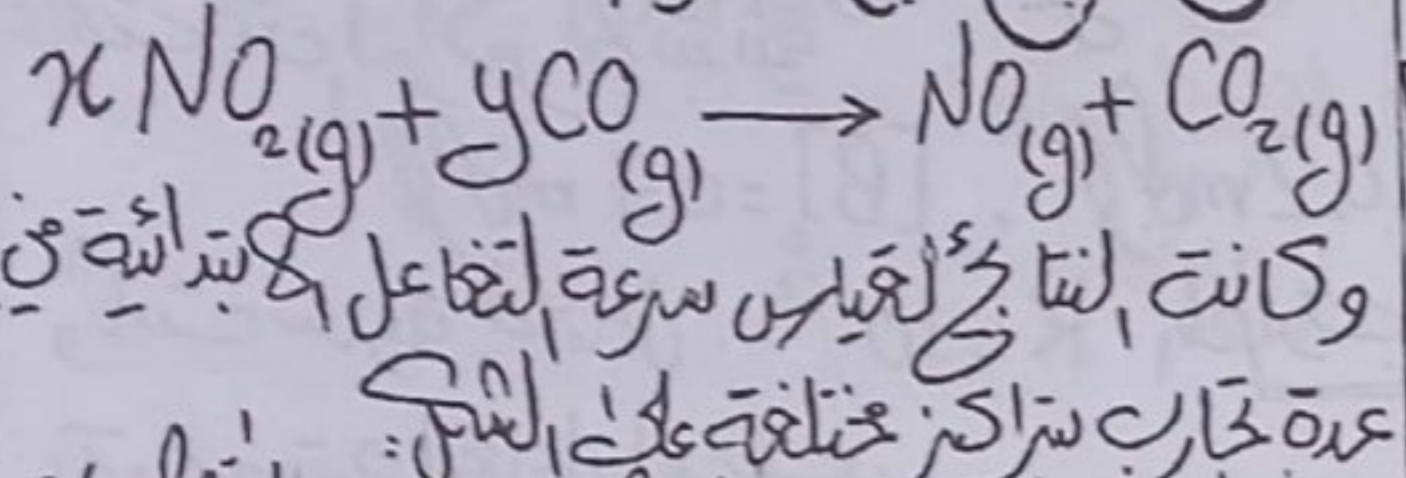 xNO₂(g) + yCO(g) ⟶ NO(g) + CO₂(g)
وكانت النتائج لقياس سرعة التفاعل الابتدائية في
عدة تجارب بتراكيز مختلفة على الشكل: